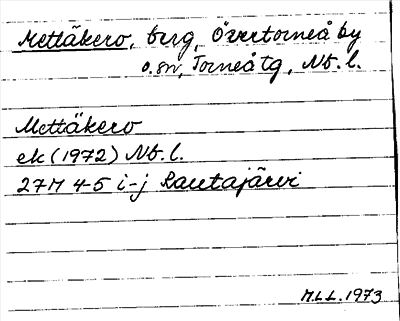 Mettäkero, berg, Övertorneå by
o. sn, Torneå tg, Nb. l.
Mettäkero
ek (1972) Nb. l.
27M 4-5 i-j Rautajärvi
M.L.L. 1973